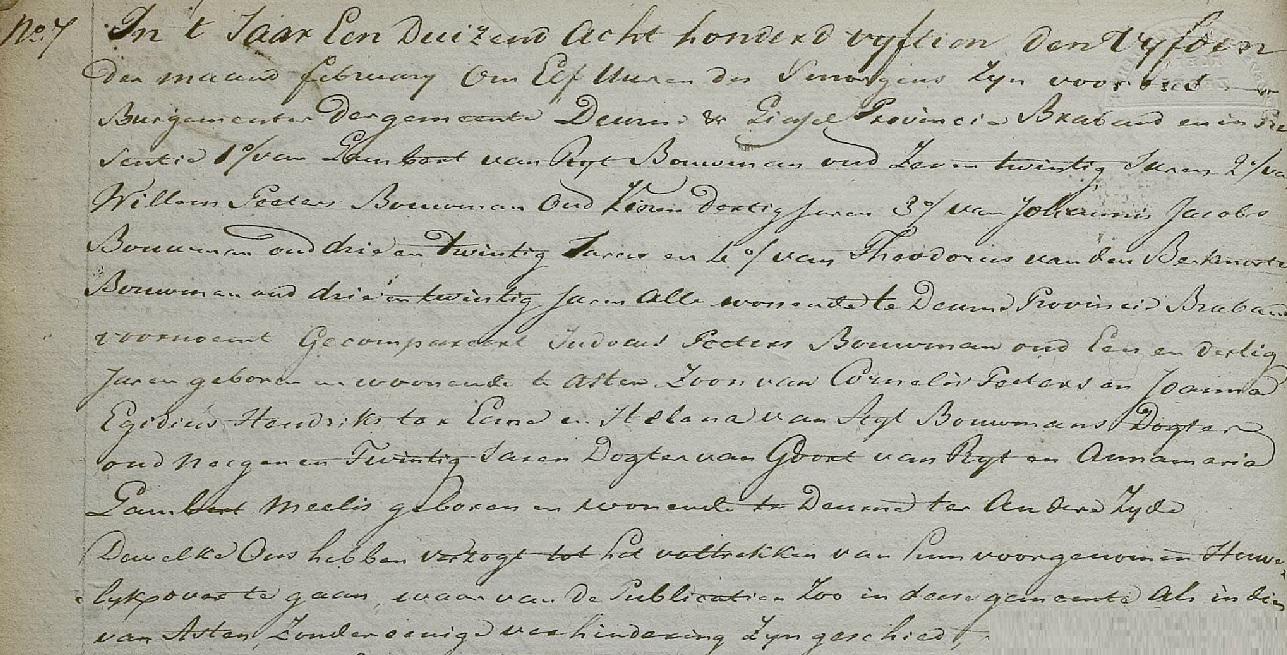 No. 7 In t Jaar Een Duizend Acht honderd vyftien den Vyfden
der maand february Om Elf Uuren des Smorgens Zyn voor
Burgemeester der gemeente Deurne & Liessel Provincie Braband en in
sentie 1o/ van Lambert van Ryt Bouwman oud Zeven twintig Jaren 2o/ van
Willem Peeters Bouwman Oud dertig Jaren 3o/ van Johannis Jacobs
Bouwman oud drie en twintig Jaren en 4o/ van Theodorus van den
Bouwman oud drie en twintig Jaren Alle wonende te Deurne Provincie Braband
voornoemt Gecompareert Judocus Peeters Bouwman oud Een en dertig
Jaren geboren en woonende te Asten Zoon van Cornelis Peeters en Joanna
Egidius Hendriks ter Eene en Helena van Ryt Bouwmans Dogter
oud Neegen en Twintig Jaren Dogter van Goort van Ryt en Annamaria
Lambert Meelis geboren en wonende te Deurne ter Andere Zyde
Dewelke Ons hebben verzogt tot het voltrekken van hun voorgenomen Houwe
lyk over te gaan, waar van de Publicatien Zoo in deese gemeente Als in die
van Asten, Zonder eenige verhindering Zyn geschied,